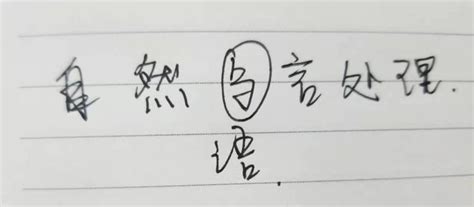 自然与言处理.
语.